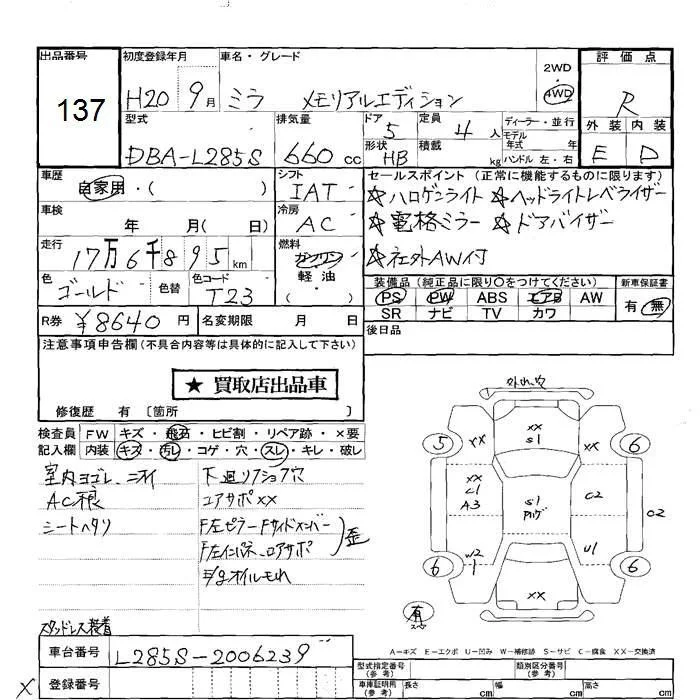 出品番号 初度登録年月 車名・グレード 評価点
137 H20 9月 ミラ メモリアルエディション 2WD 4WD R
型式 排気量 ドア 定員 ディーラー・並行 外装 内装
DBA-L285S 660cc 5 4人 モデル年式 年式 E D
形状 HB 積載 kg ハンドル 左・右
車歴 自家用・( ) シフト IAT セールスポイント (正常に機能するものに限ります)
☆ハロゲンライト ☆ヘッドライトレベライザー
車検 年 月( 日) 冷房 AC ☆電格ミラー ☆ドアバイザー
走行 17万6千895km 燃料 ガソリン 軽油 ( ) ☆社外AW付
色 ゴールド 色替 色コード T23 装備品 (純正品に限り○をつけてください) 新車保証書
PS PW ABS エアB AW 有 無
SR ナビ TV カワ
R券 ¥8640円 名変期限 月 日 後日品
注意事項申告欄 (不具合内容等は具体的に記入して下さい)
★ 買取店出品車
修復歴 有 〔箇所 〕
検査員 FW キズ・飛石・ヒビ割・リペア跡・×要
記入欄 内装 キズ・汚レ・コゲ・穴・スレ・キレ・破レ
室内ヨゴレ、ニオイ 下廻リフショ穴
AC根 コアサポ××
シートヘタリ F左ピラー Fサイドメンバー
F左インパネ、ロアサポ 歪
オイルモれ
スタッドレス装着
外れ、穴
×× S1
5 ×× ×× 6
×× C1 A3 S1 C2 C2
W2 1 U1
6 ×× 6
有
A-キズ E-エクボ U-凹み W-補修跡 S-サビ C-腐食 XX-交換済
車台番号 L285S-2006239 型式指定番号 (参考) 類別区分番号 (参考)
× 登録番号 車庫証明用 (参考) 長さ cm 幅 cm 高さ cm